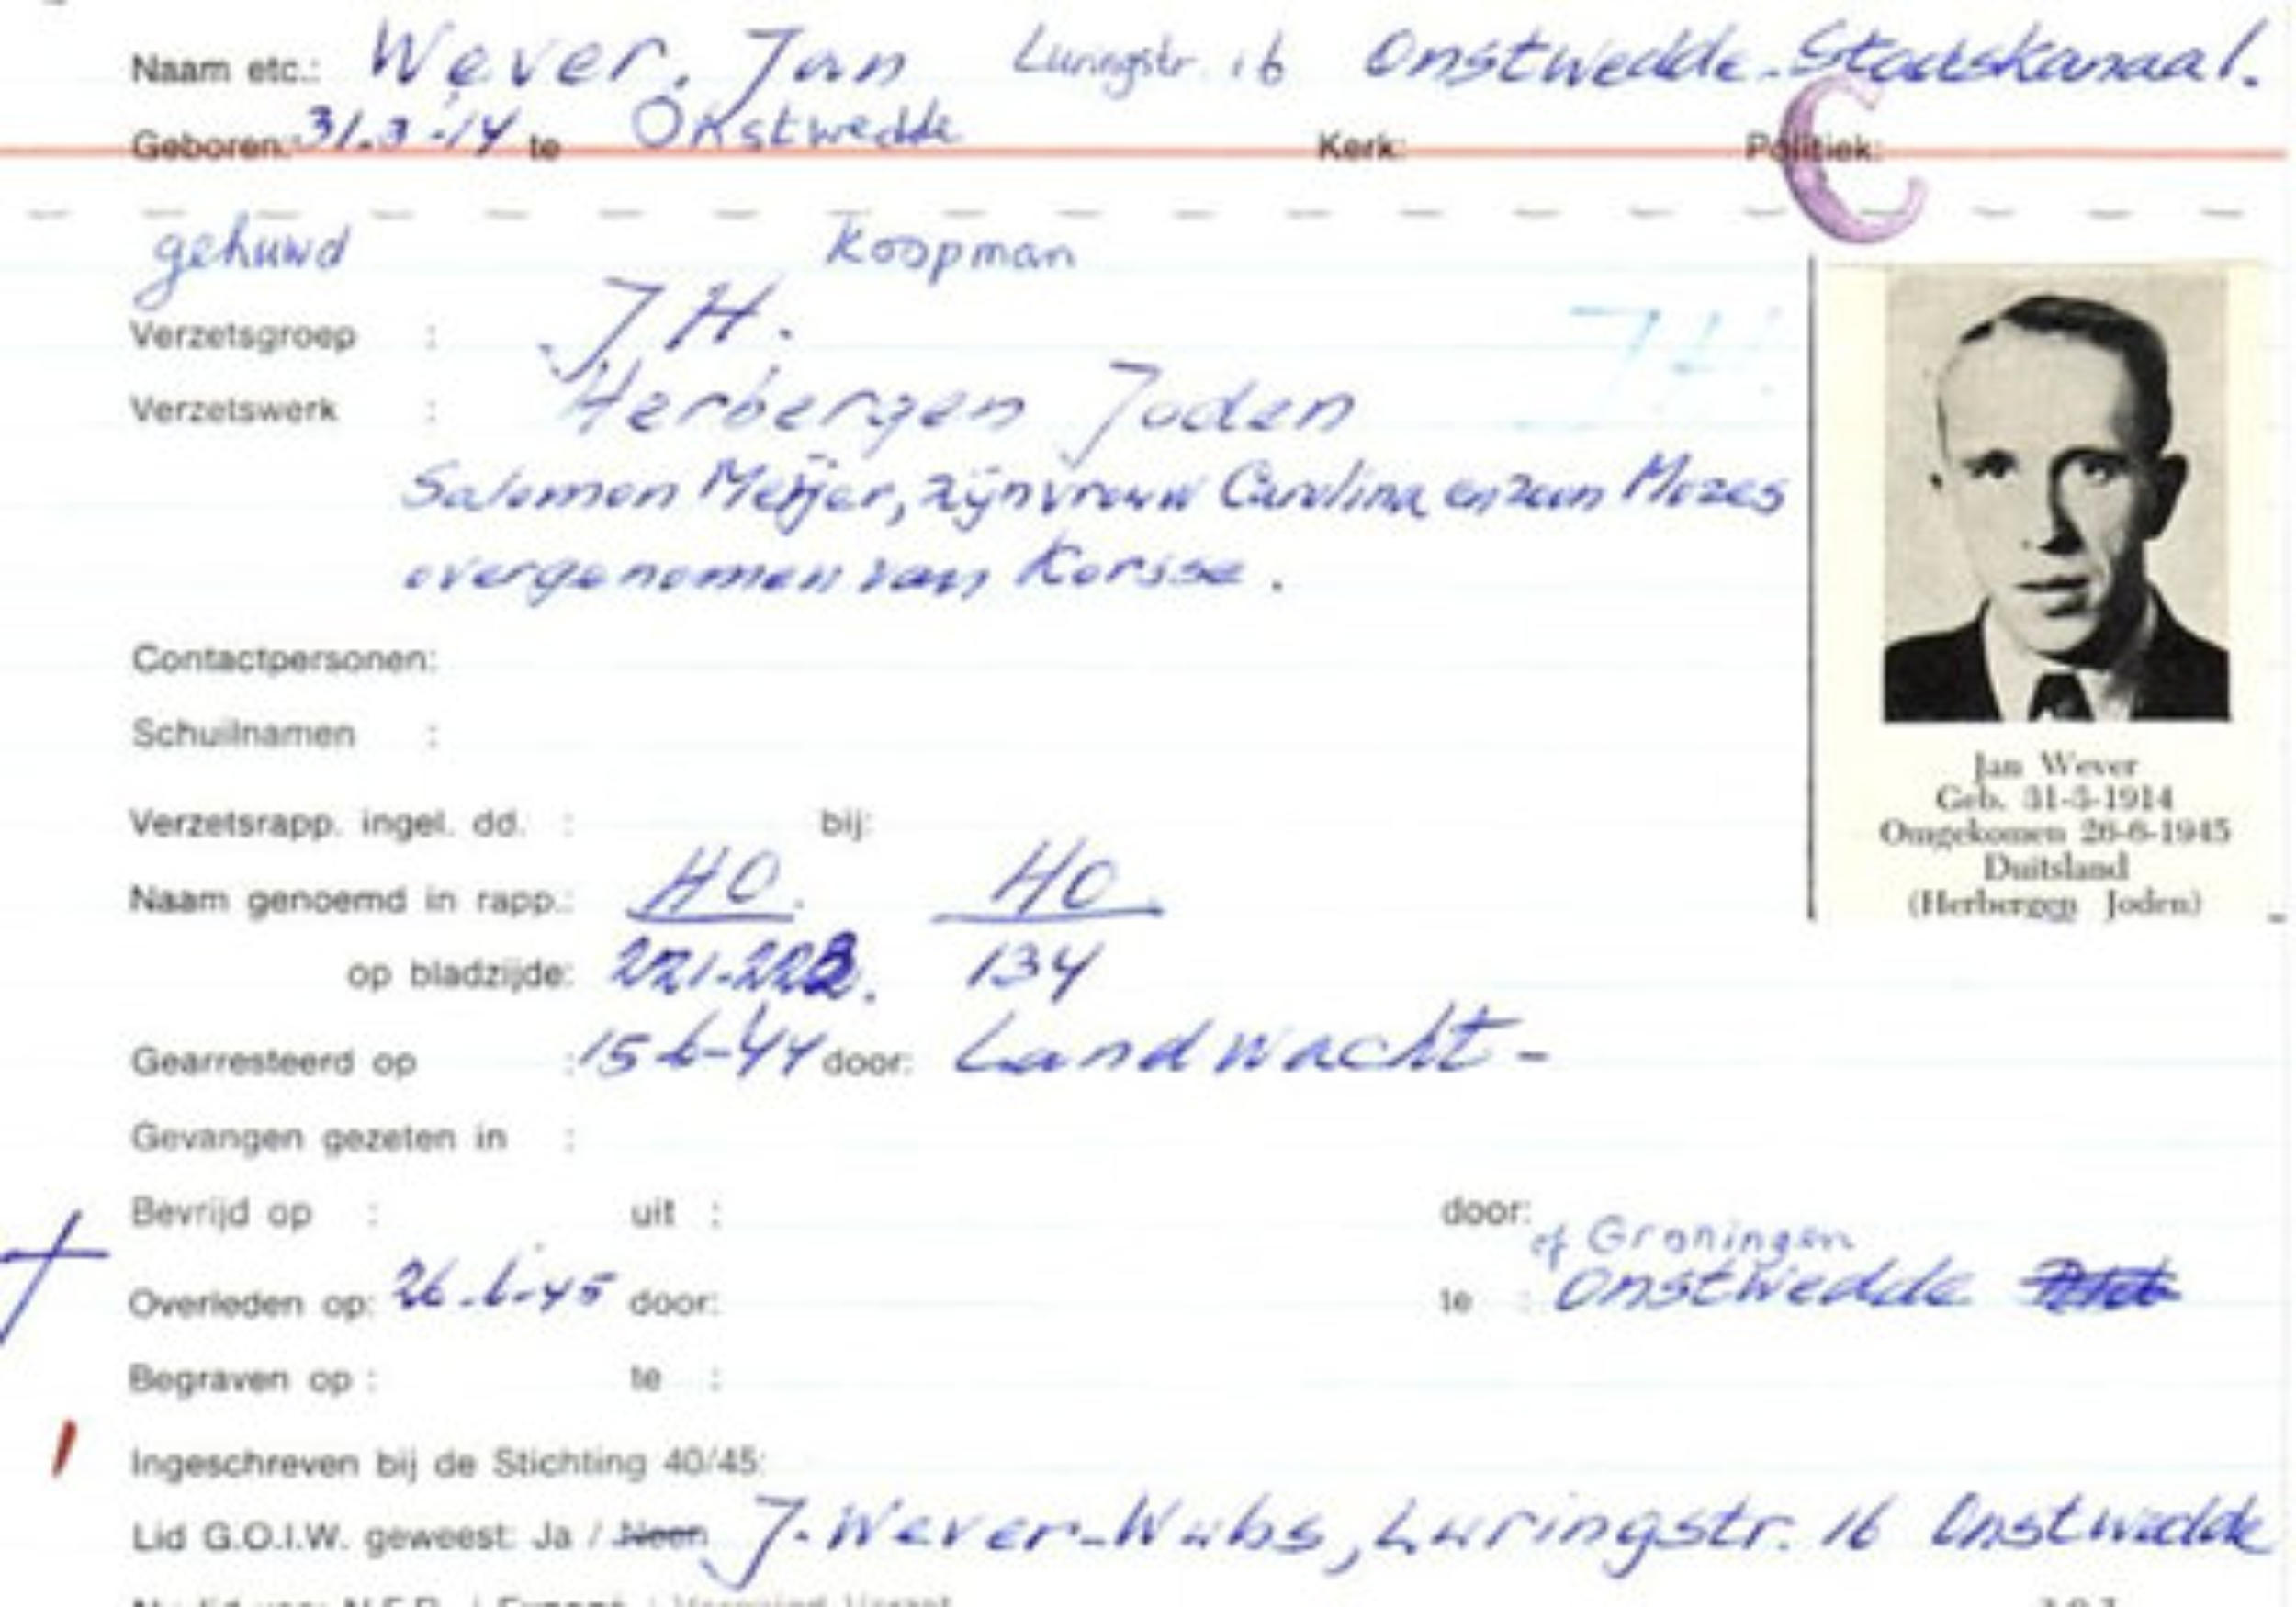 Naam etc.: Wever, Jan Luringstr. 16 Onstwedde-Stadskanaal.
Geboren: 31.3.-14 te Onstwedde Kerk: Politiek:
C
gehuwd koopman
Verzetsgroep : J.H. J.H.
Verzetswerk : Herbergen Joden
Salomon Meijer, zijn vrouw Carolina en zoon Mozes
overgenomen van Korsse.
Contactpersonen:
Schuilnamen :
Jan Wever
Geb. 31-3-1914
Omgekomen 26-6-1945
Duitsland
(Herbergen Joden)
Verzetsrapp. ingel. dd. : bij:
Naam genoemd in rapp.: HO. HO.
op bladzijde: 221-223. 134
Gearresteerd op : 15-6-44 door: Landwacht-
Gevangen gezeten in :
Bevrijd op : uit : door:
of Groningen
Overleden op: 26-6-45 door: te : Onstwedde
Begraven op : te :
Ingeschreven bij de Stichting 40/45:
Lid G.O.I.W. geweest: Ja / Neen J. Wever-Wubs, Luringstr. 16 Onstwedde